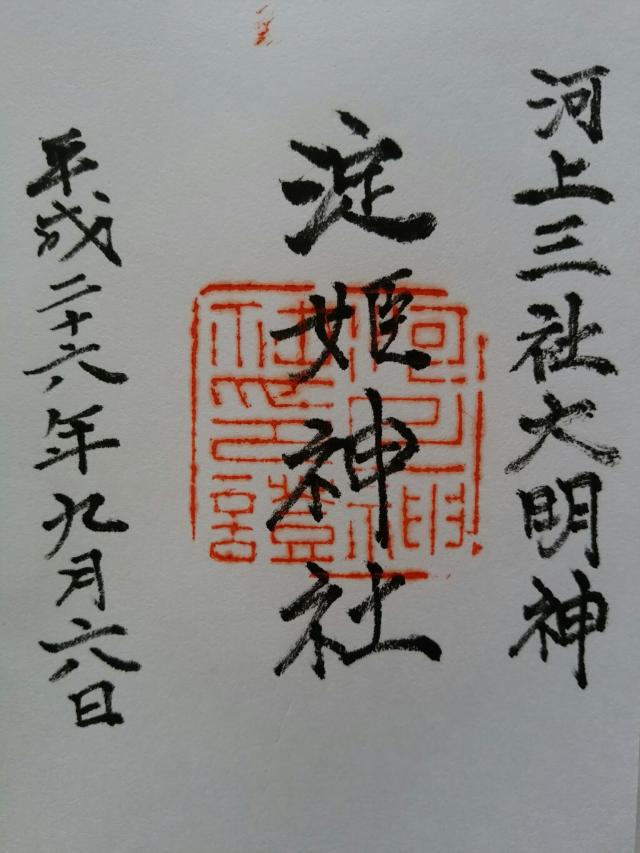 河上三社大明神
淀姫神社
平成二十六年九月六日